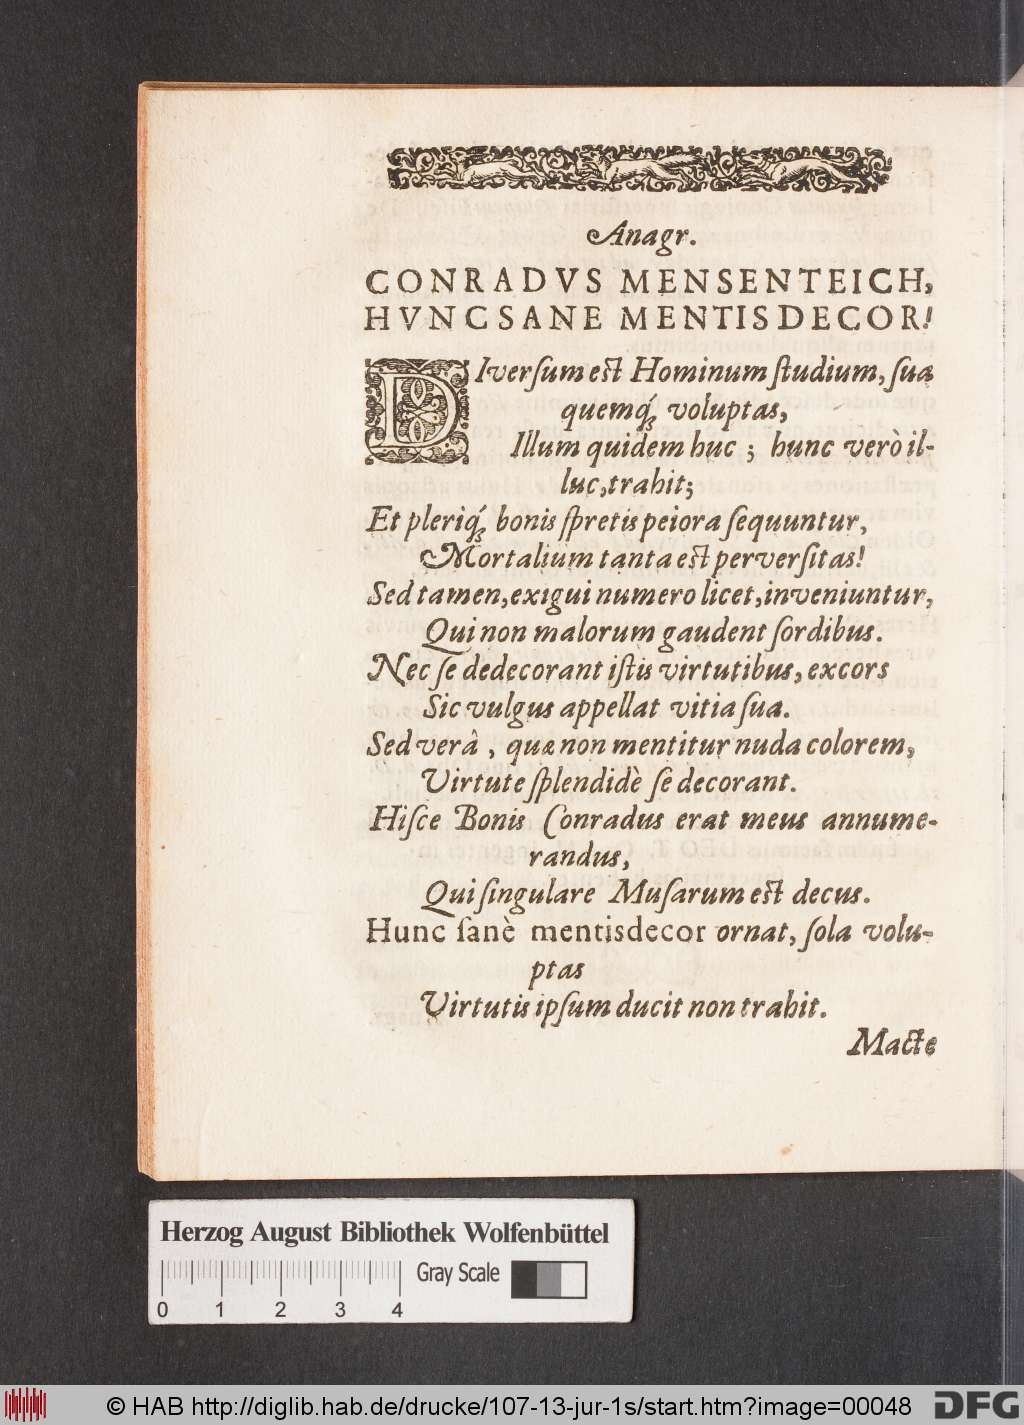 Anagr.
CONRADVS MENSENTEICH,
HVNC SANE MENTIS DECOR!
DIverſum est Hominum ſtudium, ſua
quemq́ꝫ voluptas,
Illum quidem huc ; hunc verò il-
luc, trahit;
Et pleriq́ꝫ bonis ſpretis peiora ſequuntur,
Mortalium tanta est perverſitas!
Sed tamen, exigui numero licet, inveniuntur,
Qui non malorum gaudent ſordibus.
Nec ſe dedecorant iſtis virtutibus, excors
Sic vulgus appellat vitia ſua.
Sed verâ , quæ non mentitur nuda colorem,
Virtute ſplendidè ſe decorant.
Hiſce Bonis Conradus erat meus annume-
randus,
Qui ſingulare Muſarum est decus.
Hunc ſanè mentis decor ornat, ſola volu-
ptas
Virtutis ipſum ducit non trahit.
Macte
Herzog August Bibliothek Wolfenbüttel
Gray Scale
0 1 2 3 4
© HAB http://diglib.hab.de/drucke/107-13-jur-1s/start.htm?image=00048
DFG